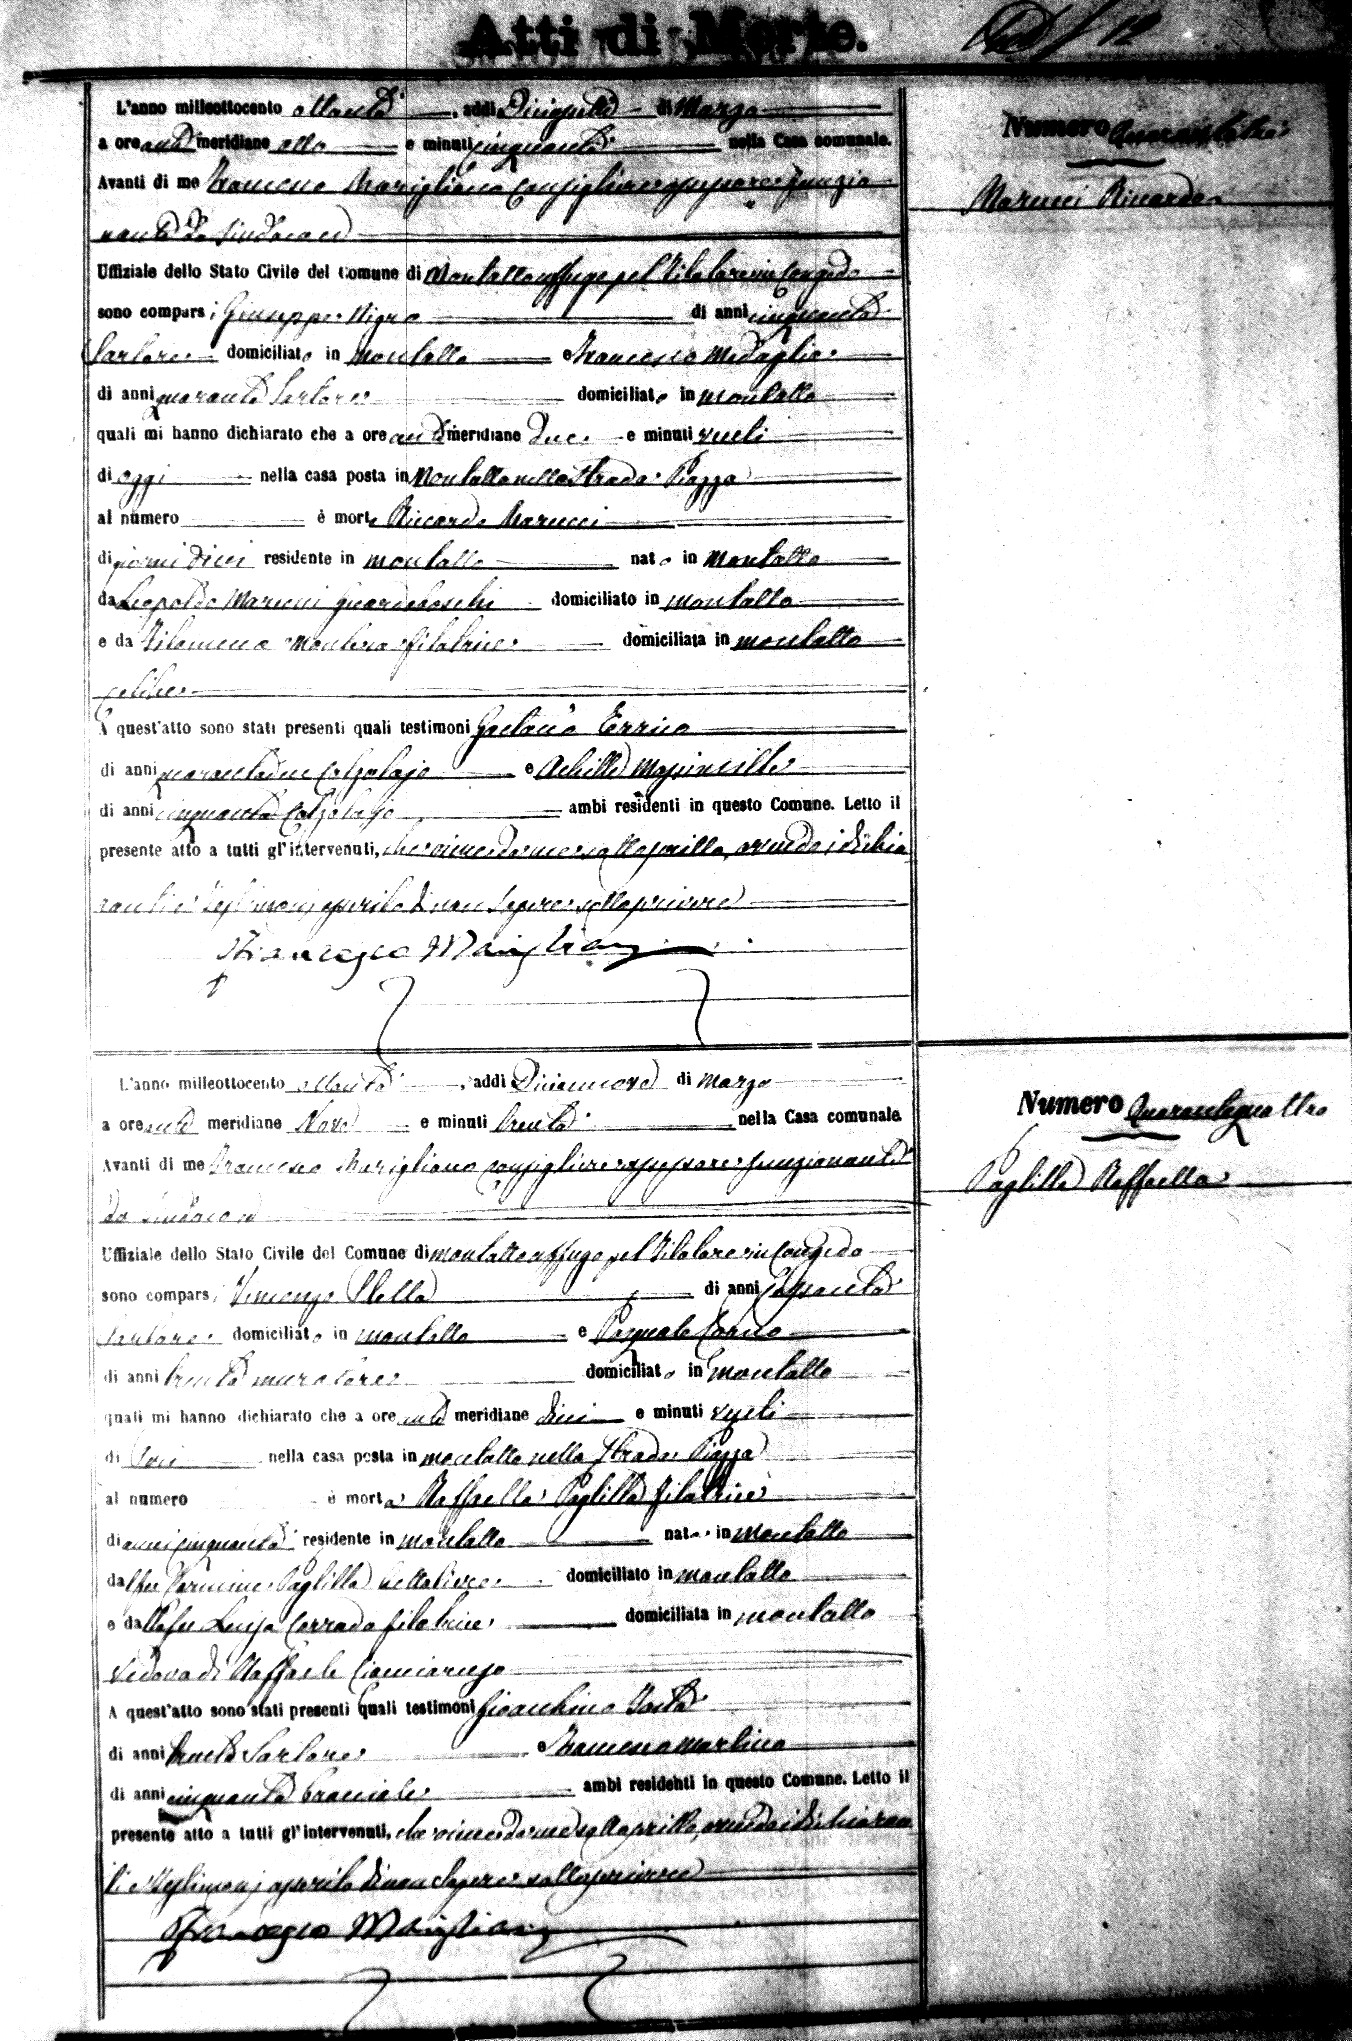 Atti di Morte.
Numero Quarantatre
Marucci Riccardo
L'anno milleottocento ottanta, addi Diciassette di Marzo
a ore anti meridiane otto e minuti cinquanta nella Casa comunale.
Avanti di me Francesco Marigliano Consigliere assessore funzio
nante da Sindaco
Uffiziale dello Stato Civile del Comune di Montalto uffugo pel Titolare in Congedo
sono comparsi Giuseppe Nigro di anni cinquanta
Sartore domiciliato in Montalto e Francesco Medaglia
di anni quaranta Sartore domiciliato in Montalto
quali mi hanno dichiarato che a ore anti meridiane due e minuti venti
di oggi nella casa posta in Montalto nella Strada Piazza
al numero è morto Riccardo Marucci
di giorni dieci residente in Montalto nato in Montalto
da Leopoldo Marucci guardaboschi domiciliato in Montalto
e da Filomena Montera filatrice domiciliata in Montalto
celibe
A quest'atto sono stati presenti quali testimoni Gaetano Errico
di anni quarantadue Calzolajo e Achille
di anni cinquanta Calzolajo ambi residenti in questo Comune. Letto il
presente atto a tutti gl'intervenuti, che viene da me sottoscritto, avendo i dichia
ranti e testimonj asserito di non sapere sottoscrivere
Francesco Marigliano
Numero Quarantaquattro
Paglilla Raffaella
L'anno milleottocento ottanta, addi Diciannove di Marzo
a ore anti meridiane Nove e minuti trenta nella Casa comunale.
Avanti di me Francesco Marigliano Consigliere assessore funzionante
da Sindaco
Uffiziale dello Stato Civile del Comune di Montalto uffugo pel Titolare in Congedo
sono comparsi Vincenzo Stella di anni Sessanta
Sartore domiciliato in Montalto e Pasquale
di anni trenta muratore domiciliato in Montalto
quali mi hanno dichiarato che a ore anti meridiane dieci e minuti venti
di jeri nella casa posta in Montalto nella Strada Piazza
al numero è morta Raffaella Paglilla filatrice
di anni cinquanta residente in Montalto nata in Montalto
dal fu Carmine Paglilla domiciliato in Montalto
e dalla fu Luisa Corrado filatrice domiciliata in Montalto
Vedova di Raffaele
A quest'atto sono stati presenti quali testimoni Gioacchino
di anni trenta Sartore e Francesco Martino
di anni cinquanta bracciale ambi residenti in questo Comune. Letto il
presente atto a tutti gl'intervenuti, che viene da me sottoscritto, avendo i dichiaran
ti e testimonj asserito di non sapere sottoscrivere
Francesco Marigliano